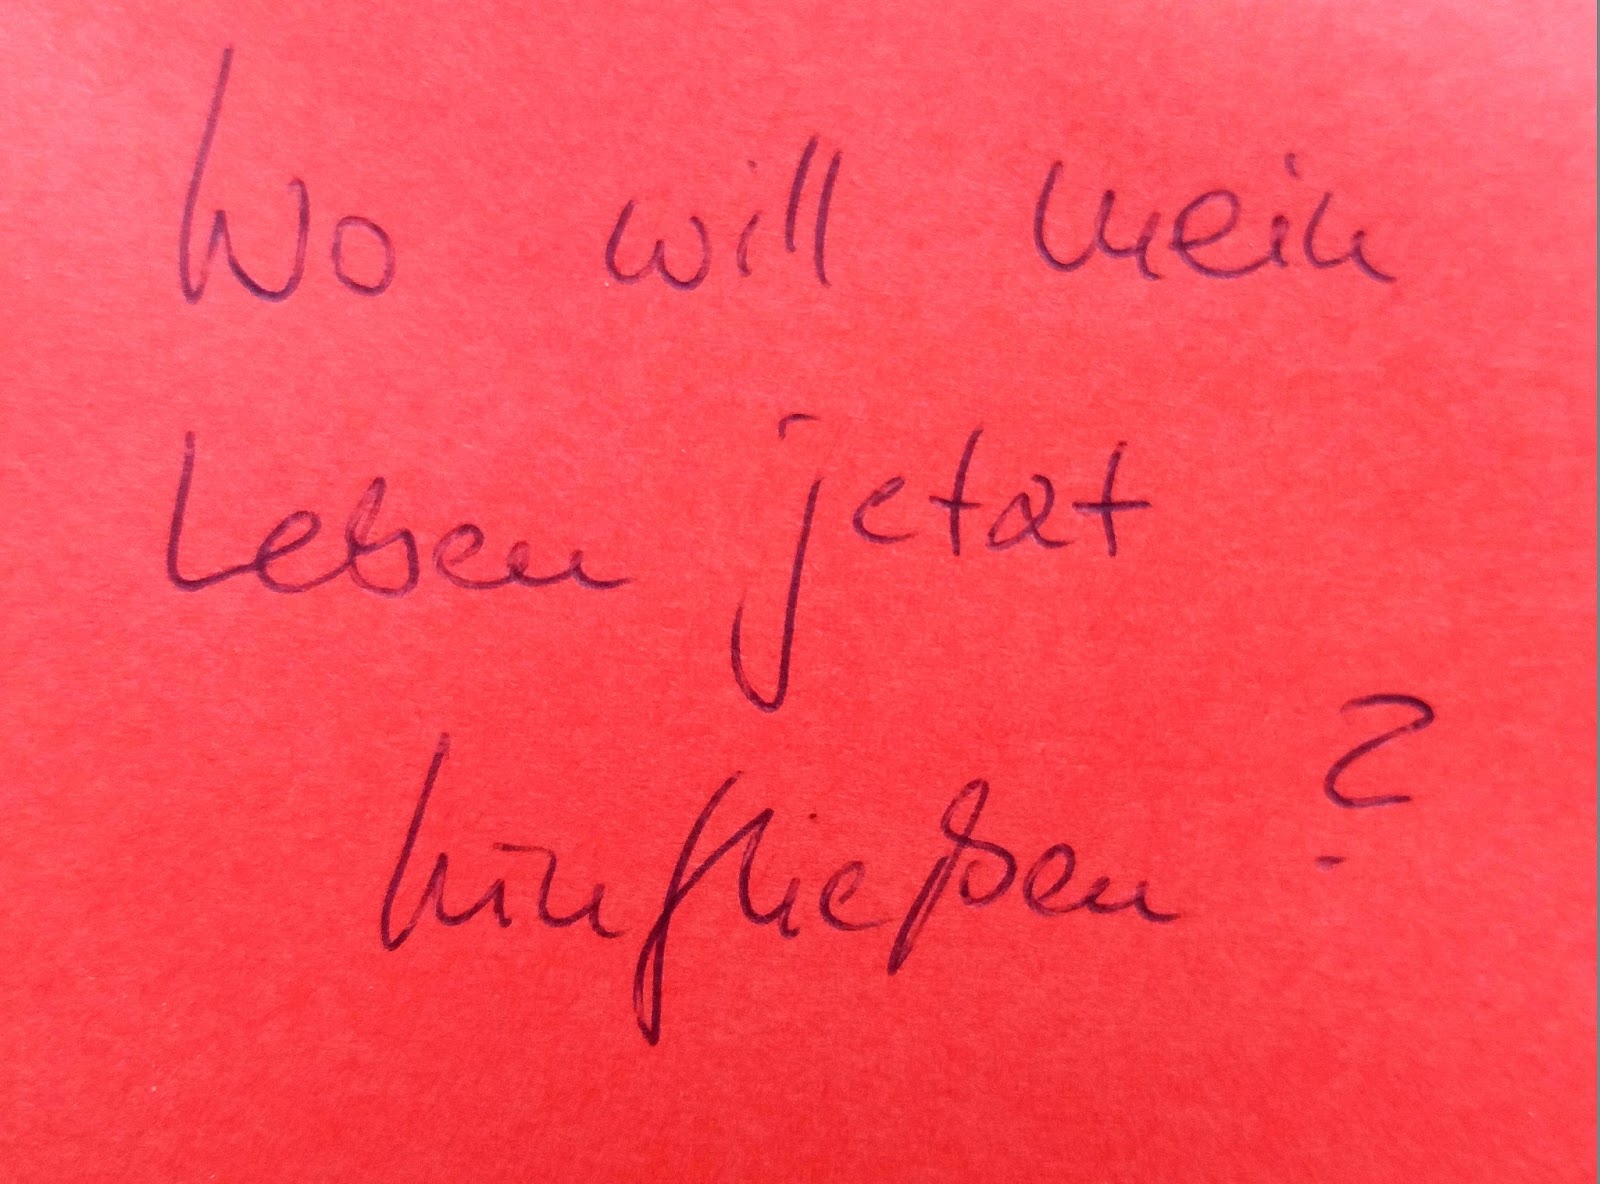 Wo will mein
Leben jetzt
hinfließen?